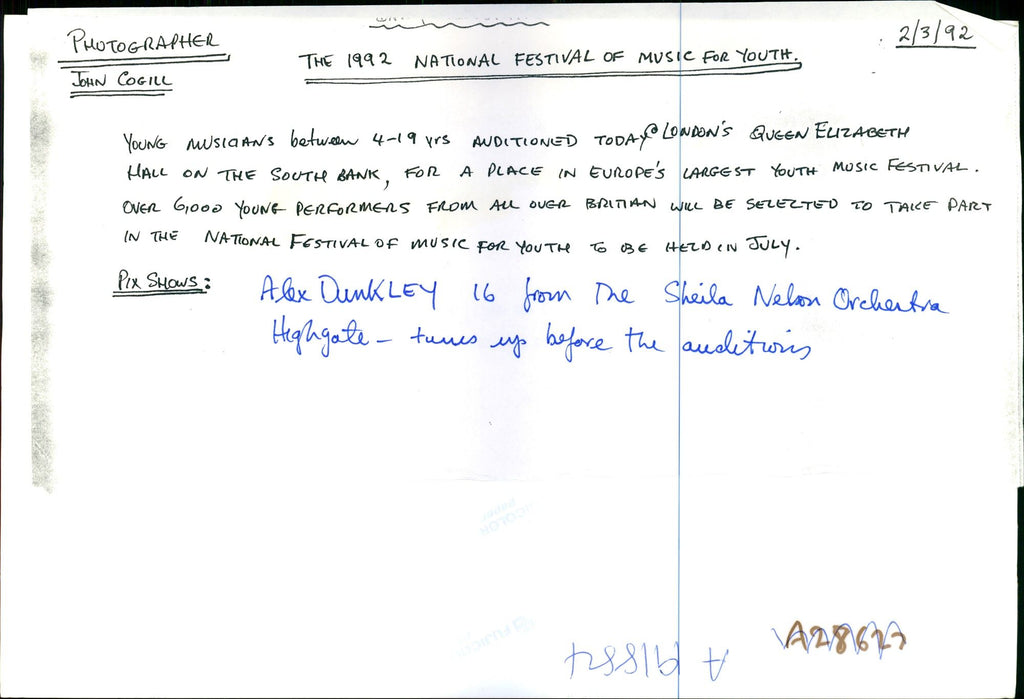 PHOTOGRAPHER
JOHN COGILL
2/3/92
THE 1992 NATIONAL FESTIVAL OF MUSIC FOR YOUTH.
YOUNG MUSICIANS between 4-19 yrs AUDITIONED TODAY @ LONDON'S QUEEN ELIZABETH
HALL ON THE SOUTH BANK, FOR A PLACE IN EUROPE'S LARGEST YOUTH MUSIC FESTIVAL.
OVER 6,000 YOUNG PERFORMERS FROM ALL OVER BRITIAN WILL BE SELECTED TO TAKE PART
IN THE NATIONAL FESTIVAL OF MUSIC FOR YOUTH TO BE HELD IN JULY.
PIX SHOWS:
Alex DUNKLEY 16 from The Sheila Nelson Orchestra
Highgate - tunes up before the auditions
A28627